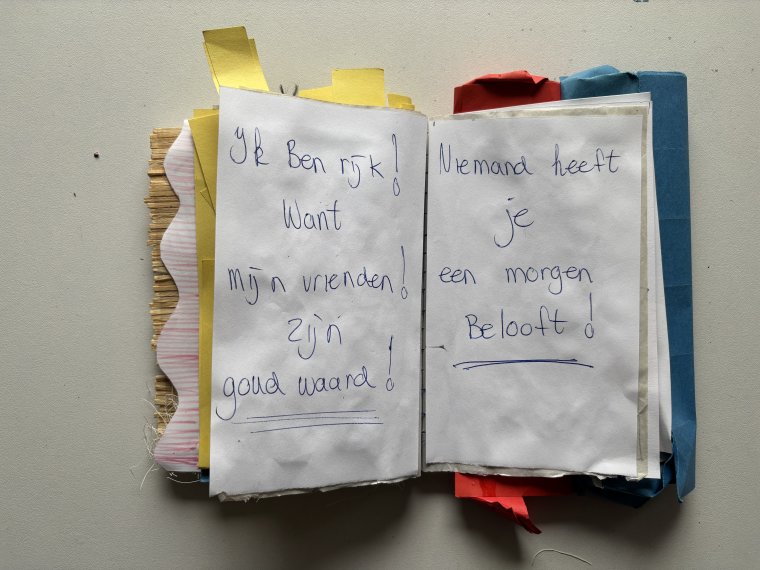 Yk Ben rijk!
Want
mijn vrienden!
zijn
goud waard!
Niemand heeft
je
een morgen
Belooft!